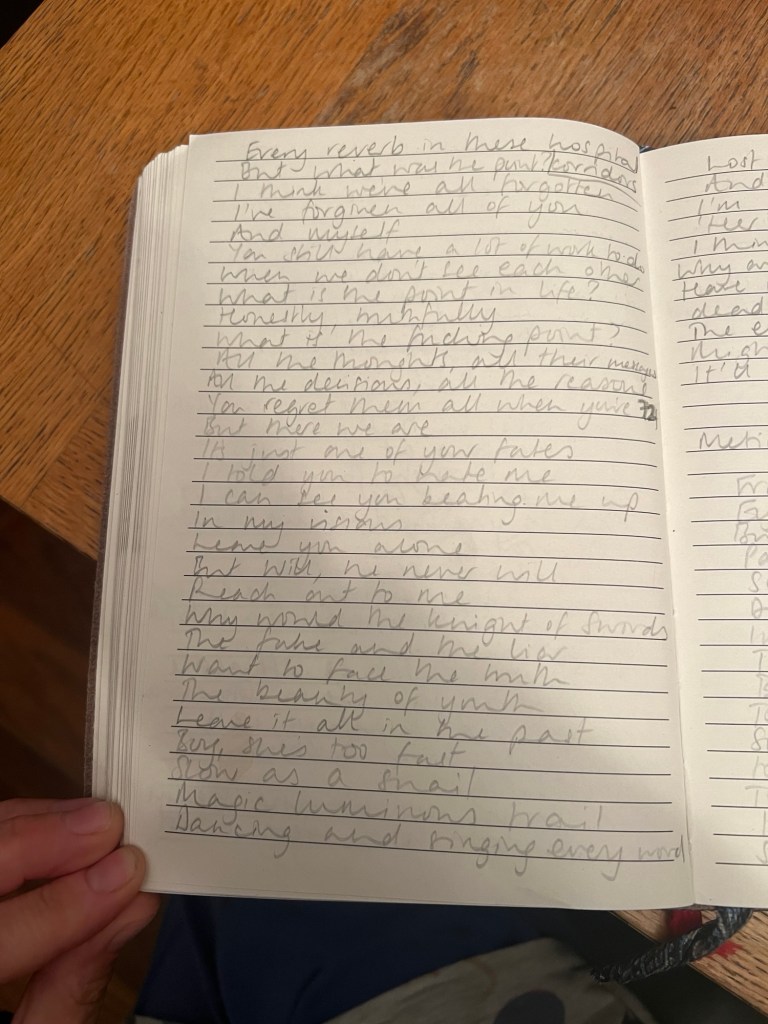 Every reverb in these hospital
corridors
But what was the point?
I think we're all forgotten
I've forgiven all of you
And myself
You still have a lot of work to do
When we don't see each other
What is the point in life?
Honestly, truthfully
What is the fucking point?
All the thoughts, all their messages
All the decisions, all the reasons
You regret them all when you're 72
But there we are
Its just one of your fates
I told you to hate me
I can see you beating me up
In my visions
Leave you alone
But Will, he never will
Reach out to me
Why would the knight of Swords
The fake and the liar
Want to face the truth
The beauty of youth
Leave it all in the past
Boy, she's too fast
Slow as a snail
Magic luminous trail
Dancing and singing every word
Lost
And
I'm
Her
I
Why
Have
dead
The
It'll